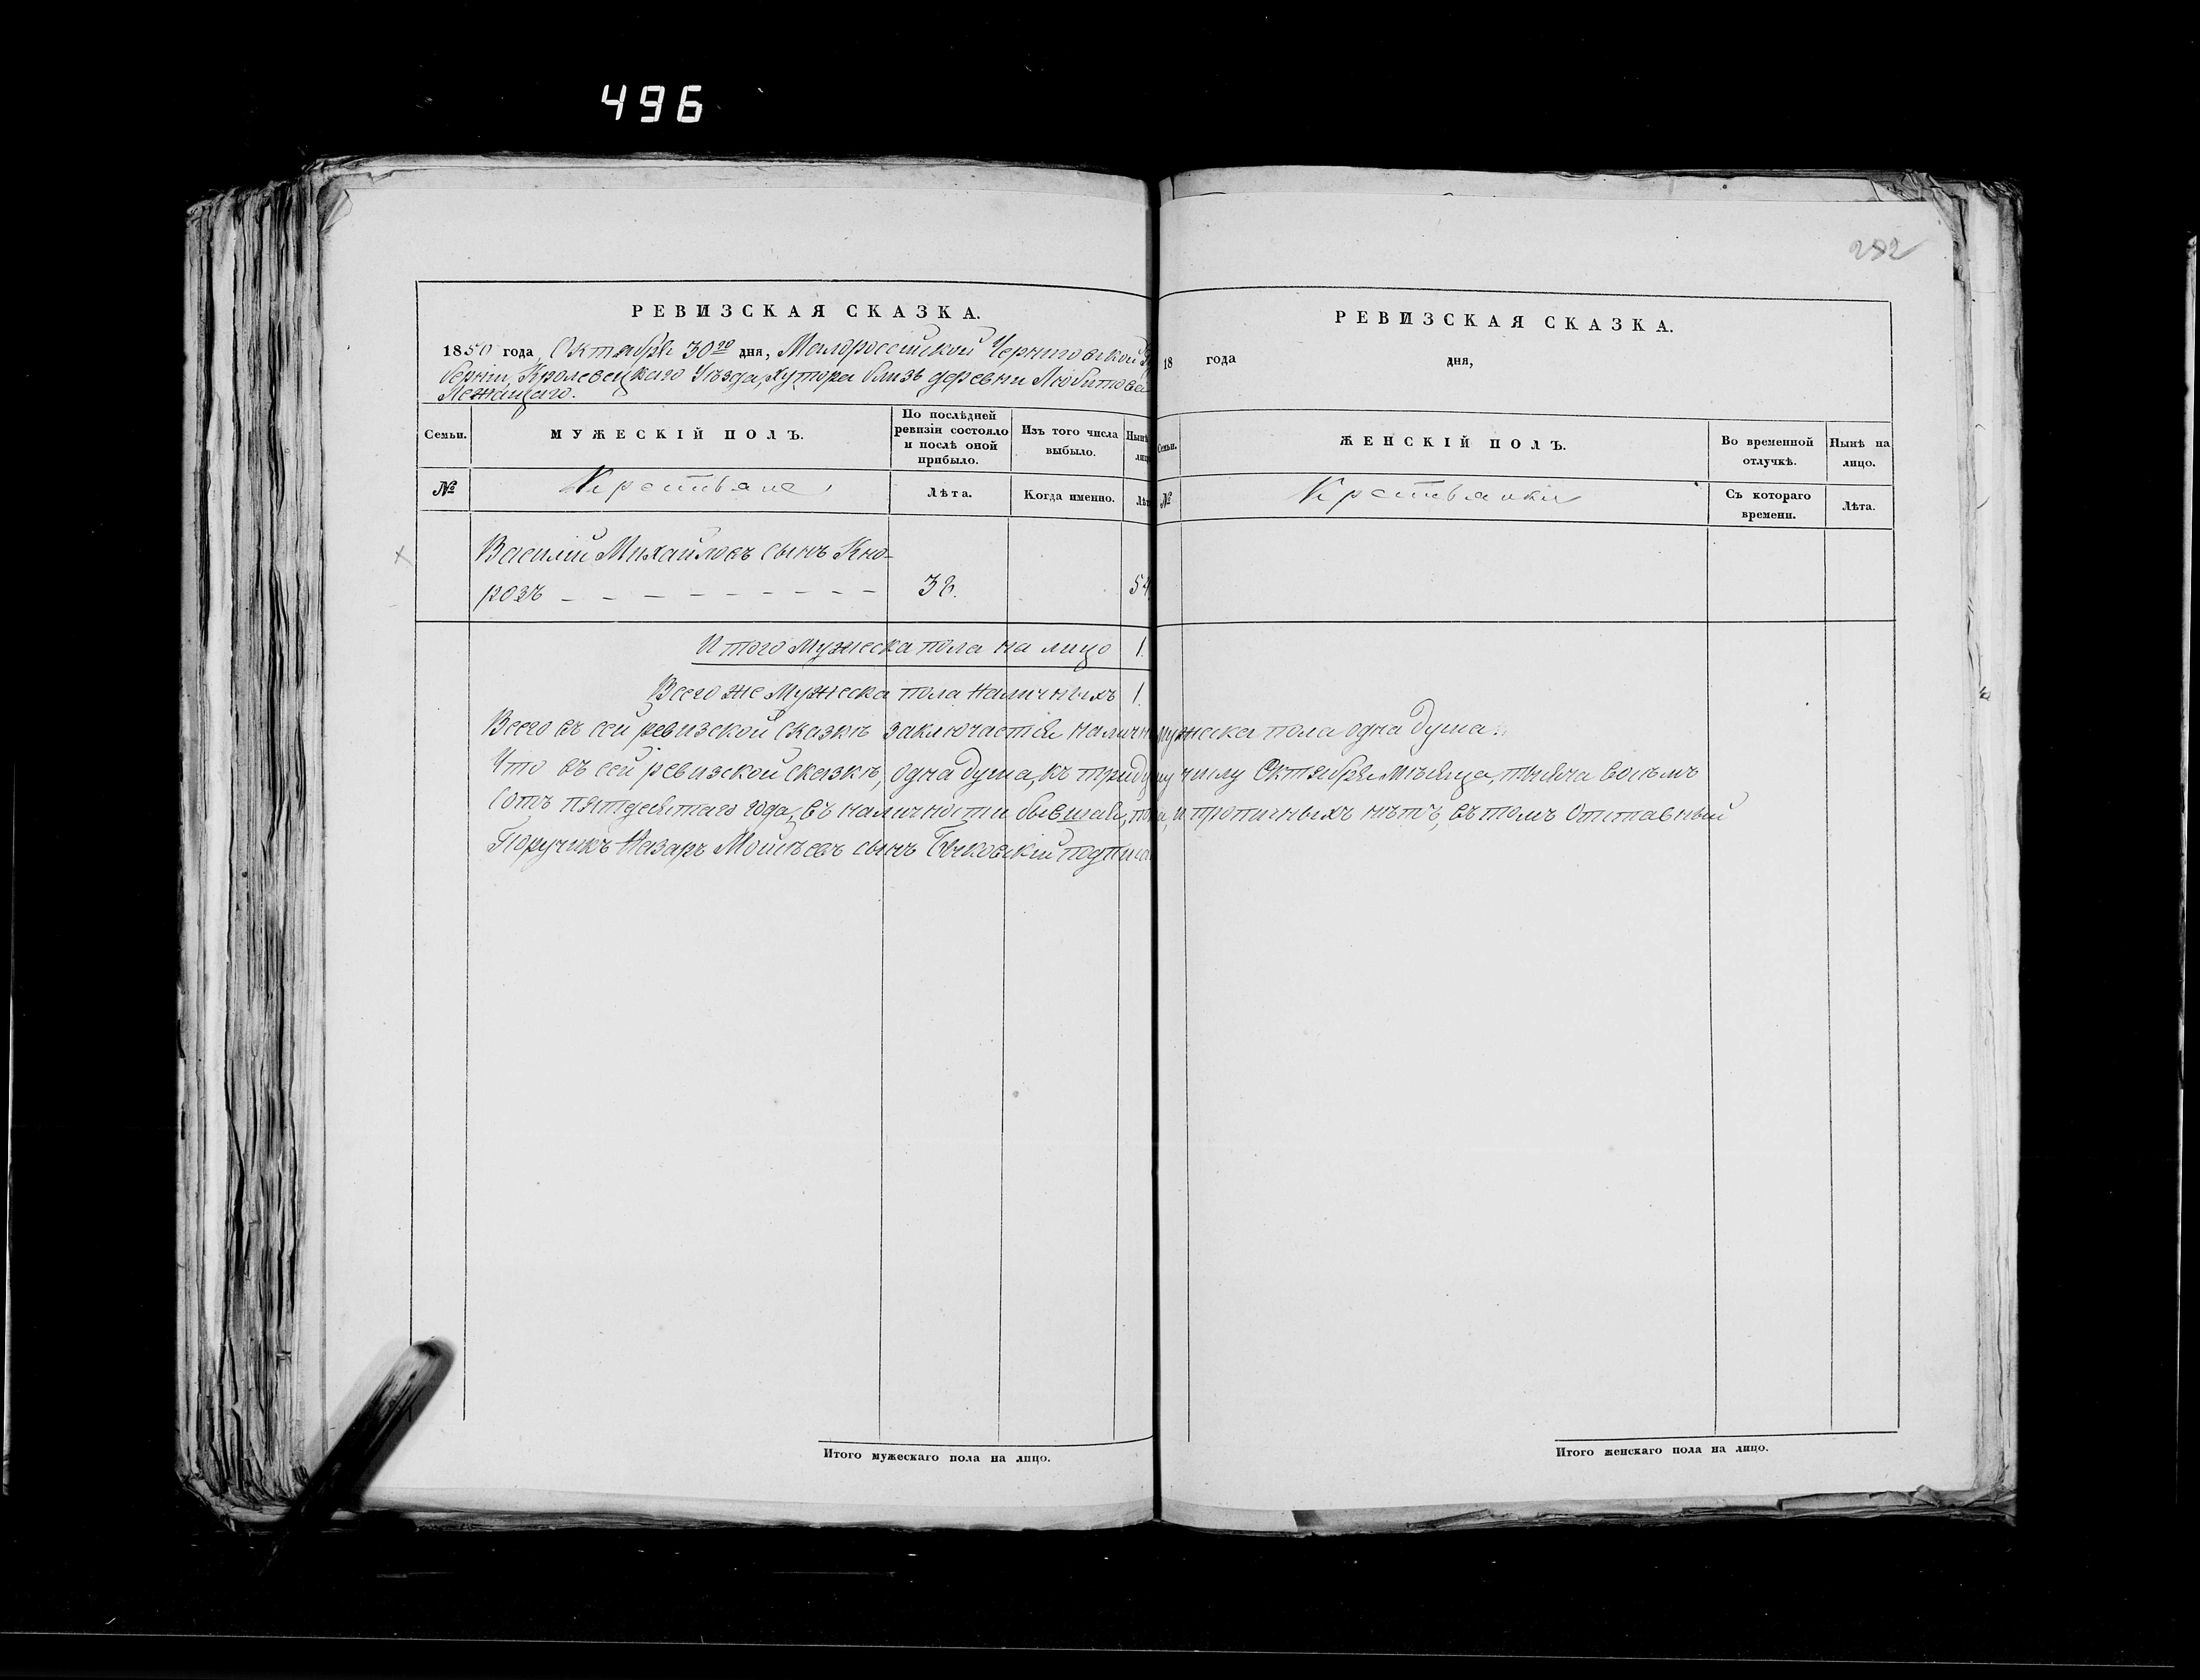 496
292
РЕВИЗСКАЯ СКАЗКА.
1850 года, Октября 30го дня, Малороссійской Черниговской Гу
берніи, Кролевецкаго Уѣзда, хутора близь деревни Любитова
Лежащаго.
Семьи.
МУЖЕСКІЙ ПОЛЪ.
По послѣдней
ревизіи состояло
и послѣ оной
прибыло.
Изъ того числа
выбыло.
Нынѣ
лицо
№
Крестьяне
Лѣта.
Когда именно.
Лѣт
Василій Михайловъ сынъ Кно-
розъ – – – – – – – – –
38.
54.
Итого Мужеска пола на лицо 1.
Всего же Мужеска пола Наличныхъ 1.
РЕВИЗСКАЯ СКАЗКА.
18 года дня,
Семьи.
ЖЕНСКІЙ ПОЛЪ.
Во временной
отлучкѣ.
Нынѣ на
лицо.
№
Крестьянки
Съ котораго
времени.
Лѣта.
Всего въ сей ревизской сказкѣ заключается Налично мужеска пола одна душа.
Что въ сей ревизской сказкѣ, одна душа, къ числу Октября Мѣсяца, тысяча восемь
сотъ пятдесятаго года, въ наличности бывшая, и прописныхъ нѣтъ, въ томъ Отставный
Поручикъ Назаръ Мойсѣевъ сынъ Быковскій подписа
Итого мужескаго пола на лицо.
Итого женскаго пола на лицо.